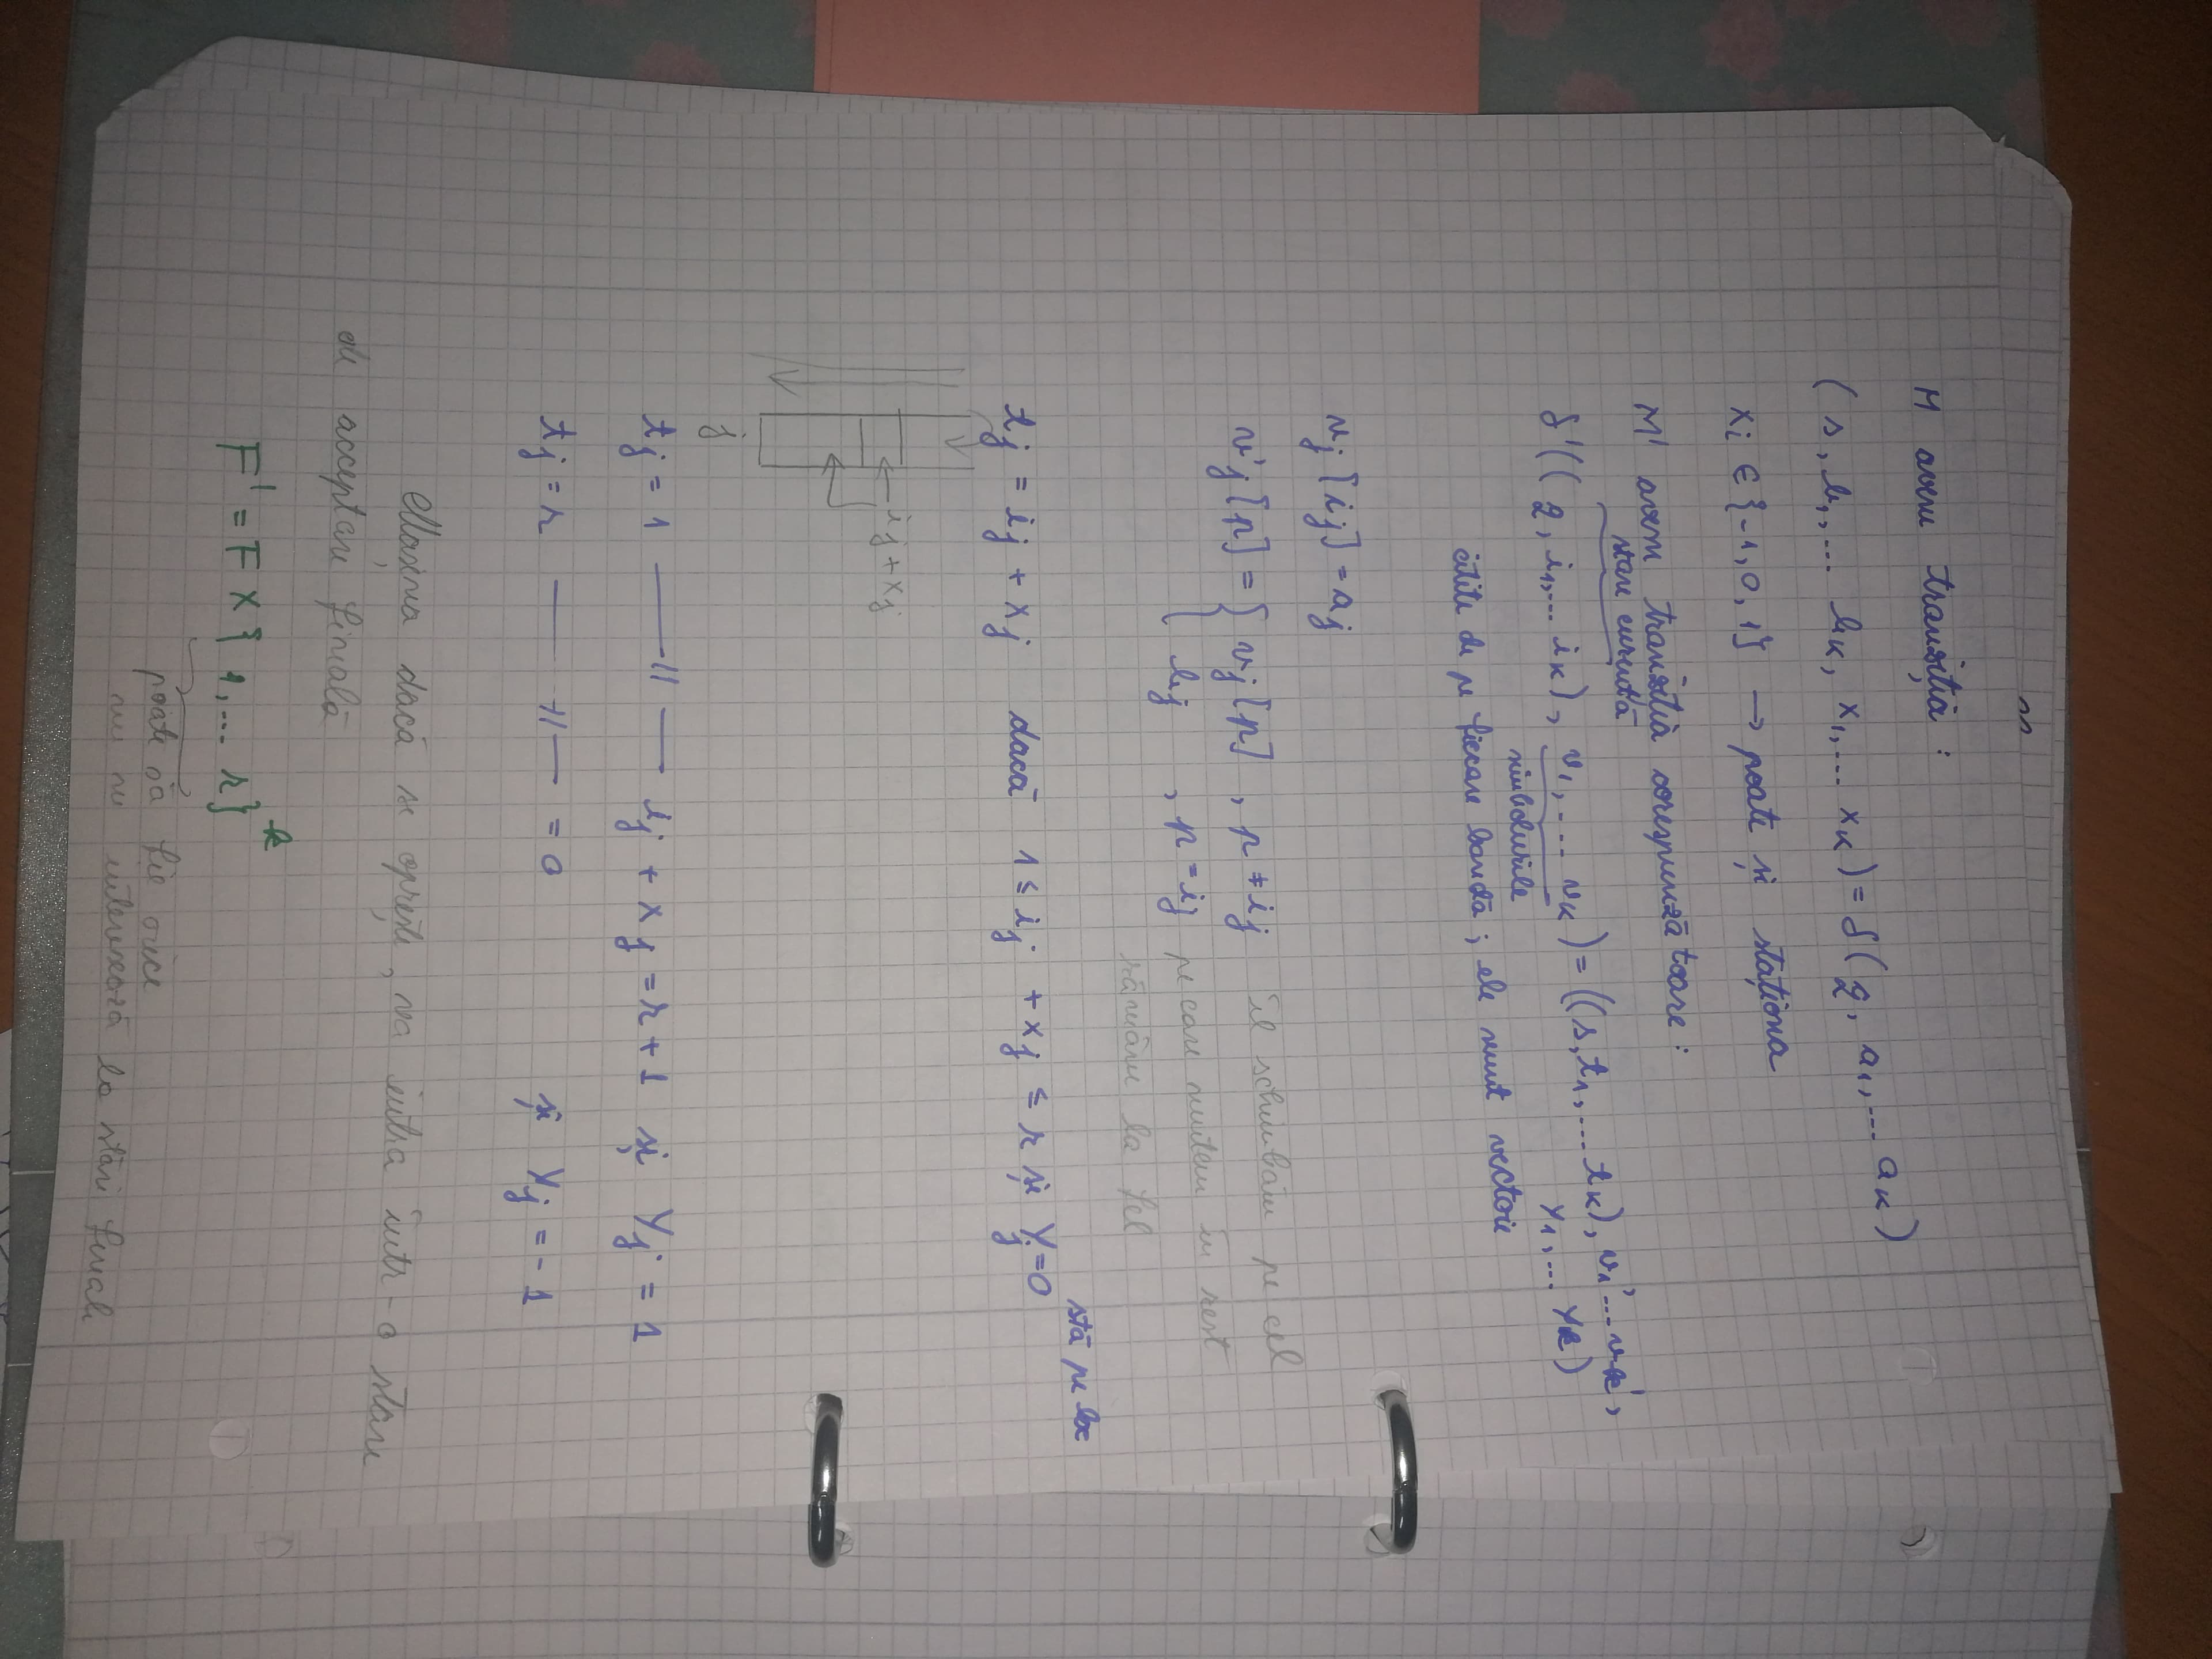 M avem tranziția :
(s, b₁,... bₖ, x₁,... xₖ) = δ(q, a₁,... aₖ)
xᵢ ∈ {-1, 0, 1} → poate și staționa
M' avem tranziția corespunzătoare :
stare curentă
δ'((q, i₁,... iₖ), v₁,... vₖ) = ((s, t₁,... tₖ), v₁'... vₖ',
simbolurile y₁,... yₖ)
citite de pe fiecare bandă ; ele sunt vectori
vⱼ[iⱼ] = aⱼ
v'ⱼ[p] = { vⱼ[p] , p ≠ iⱼ îl schimbăm pe cel
bⱼ , p = iⱼ pe care suntem în rest
rămân la fel
stă pe loc
tⱼ = iⱼ + xⱼ dacă 1 ≤ iⱼ + xⱼ ≤ r și yⱼ = 0
iⱼ + xⱼ
j
tⱼ = 1 —— 〃 — iⱼ + xⱼ = r + 1 și yⱼ = 1
tⱼ = r —— 〃 — = 0 și yⱼ = -1
Mașina dacă se oprește, va intra într-o stare
de acceptare finală
F' = F X { 1,... r}ᵏ
poate să fie orice
nu ne interesează la stări finale